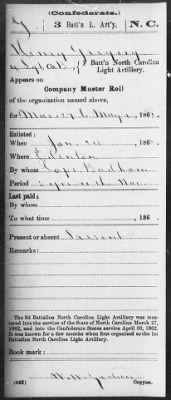 (Confederate.)
3 Batt'n L. Art'y. N. C.
Henry
Batt'n North Carolina
Light Artillery.
Appears on
Company Muster Roll
of the organization named above,
for 186
Enlisted:
When Jan 186
Where Edenton
By whom Capt Badham
Period
Last paid:
By whom
To what time 186
Present or absent Present
Remarks:
The 3d Battalion North Carolina Light Artillery was mus-
tered into the service of the State of North Carolina March 17,
1862, and into the Confederate States service April 30, 1862.
It was known for a few months when first organized as the 1st
Battalion North Carolina Light Artillery.
Book mark:
(642)
Copyist.